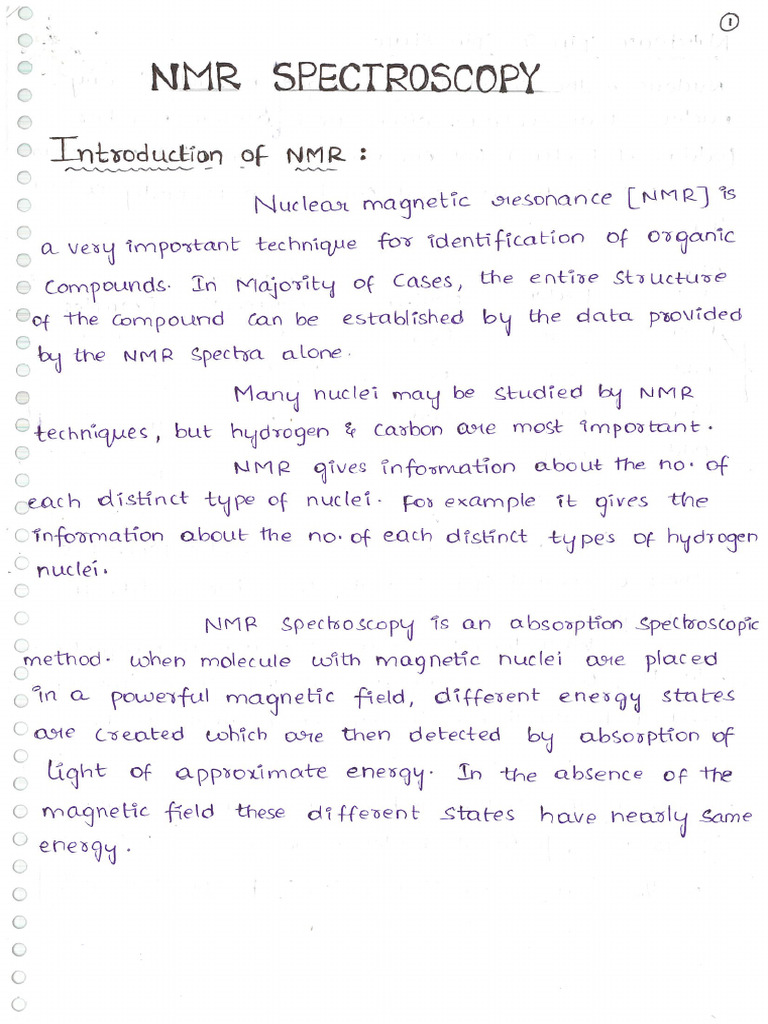 1
NMR SPECTROSCOPY
Introduction of NMR :
Nuclear magnetic resonance [NMR] is
a very important technique for identification of organic
compounds. In Majority of Cases, the entire structure
of the compound can be established by the data provided
by the NMR spectra alone.
Many nuclei may be studied by NMR
techniques, but hydrogen & carbon are most important.
NMR gives information about the no. of
each distinct type of nuclei. For example it gives the
information about the no. of each distinct types of hydrogen
nuclei.
NMR spectroscopy is an absorption spectroscopic
method. when molecule with magnetic nuclei are placed
in a powerful magnetic field, different energy states
are created which are then detected by absorption of
light of approximate energy. In the absence of the
magnetic field these different states have nearly same
energy.